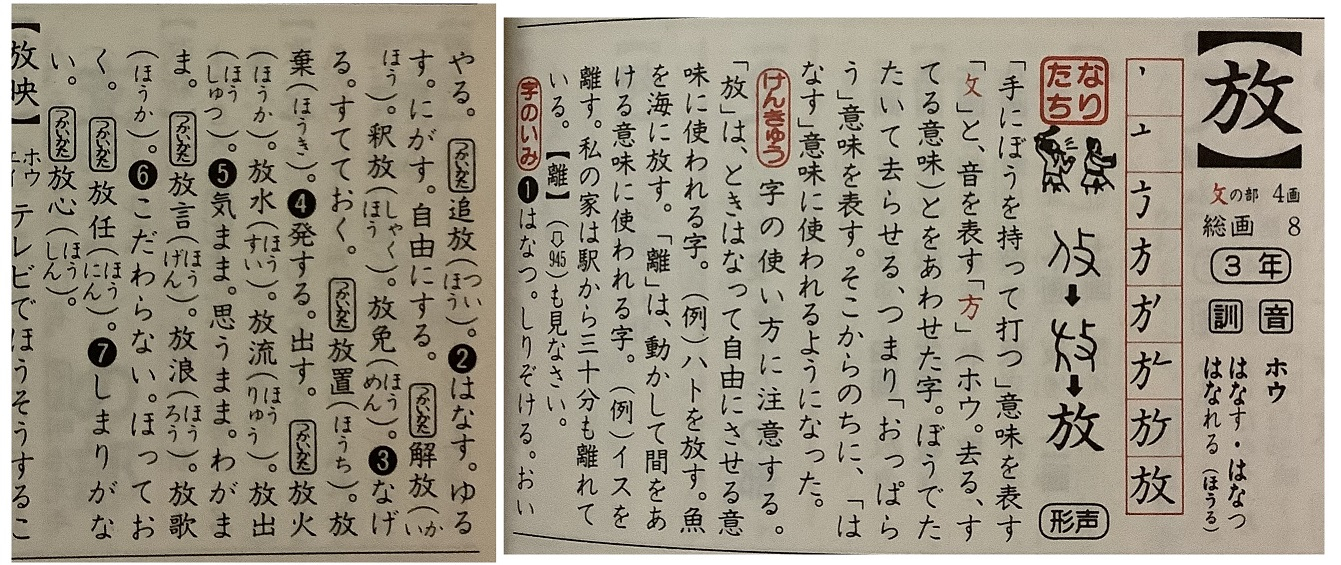 【放】
攵の部 4画
総画 8
3年
音 ホウ
訓 はなす・はなつ
はなれる(ほうる)
なりたち
放
形声
「手にぼうを持って打つ」意味を表す
「攵」と、音を表す「方」(ホウ。去る、す
てる意味)とをあわせた字。ぼうでた
たいて去らせる、つまり「おっぱら
う」意味を表す。そこからのちに、「は
なす」意味に使われるようになった。
けんきゅう 字の使い方に注意する。
「放」は、ときはなって自由にさせる意
味に使われる字。(例)ハトを放す。魚
を海に放す。「離」は、動かして間をあ
ける意味に使われる字。(例)イスを
離す。私の家は駅から三十分も離れて
いる。【離】(⇩945)も見なさい。
字のいみ ❶はなつ。しりぞける。おい
やる。つかいかた 追放(ついほう)。❷はなす。ゆる
す。にがす。自由にする。つかいかた 解放(かい
ほう)。釈放(しゃくほう)。放免(ほうめん)。❸なげ
る。すてておく。つかいかた 放置(ほうち)。放
棄(ほうき)。❹発する。出す。つかいかた 放火
(ほうか)。放水(ほうすい)。放流(ほうりゅう)。放出
(ほうしゅつ)。❺気まま。思うまま。わがま
ま。つかいかた 放言(ほうげん)。放浪(ほうろう)。放歌
(ほうか)。❻こだわらない。ほってお
く。つかいかた 放任(ほうにん)。❼しまりがな
い。つかいかた 放心(ほうしん)。
【放映】ホウエイ テレビでほうそうするこ